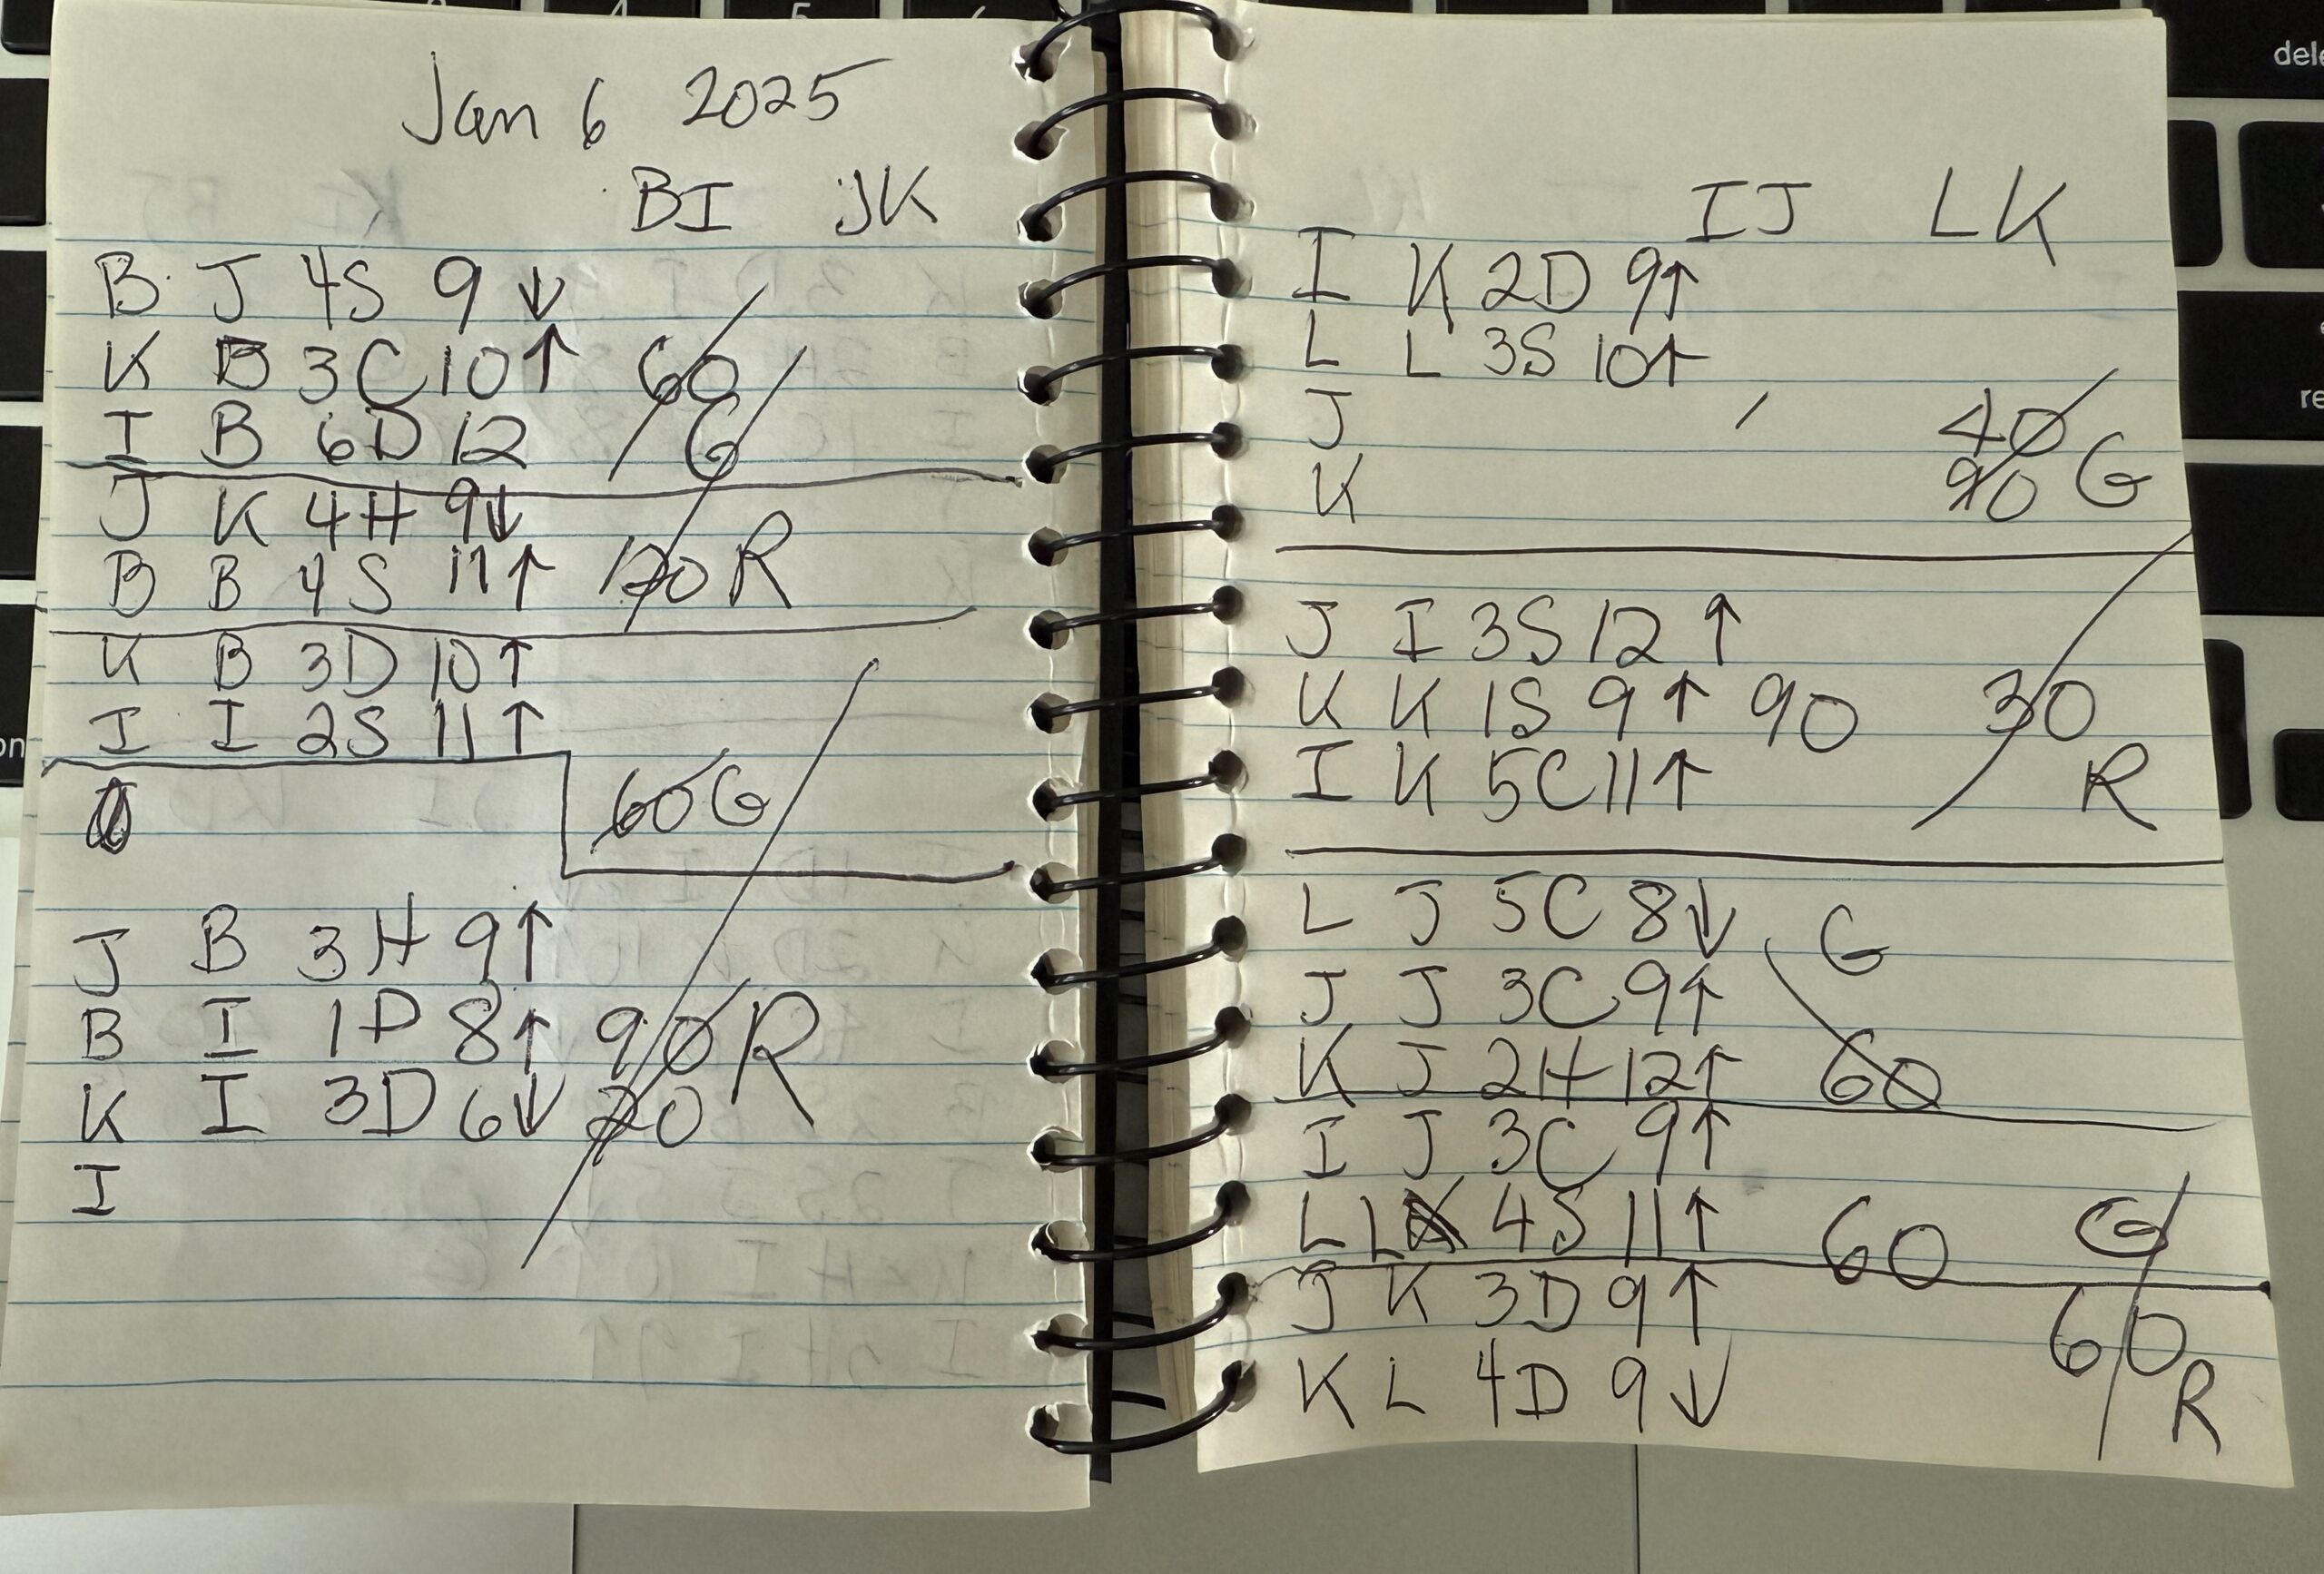 Jan 6 2025
BI JK
B J 4S 9 ↓
K B 3C 10 ↑ 60
I B 6D 12 G
J K 4H 9 ↓
B B 4S 11 ↑ 120 R
K B 3D 10 ↑
I I 2S 11 ↑
60 G
J B 3H 9 ↑
B I 1D 8 ↑ 90 R
K I 3D 6 ↓ 20
I
IJ LK
I K 2D 9 ↑
L L 3S 10 ↑
J 40
K 90 G
J I 3S 12 ↑
K K 1S 9 ↑ 90 30
I K 5C 11 ↑ R
L J 5C 8 ↓ G
J J 3C 9 ↑
K J 2H 12 ↑ 60
I J 3C 9 ↑
L L 4S 11 ↑ 60 G
J K 3D 9 ↑ 60
K L 4D 9 ↓ R
dele
re
on
4
5
6